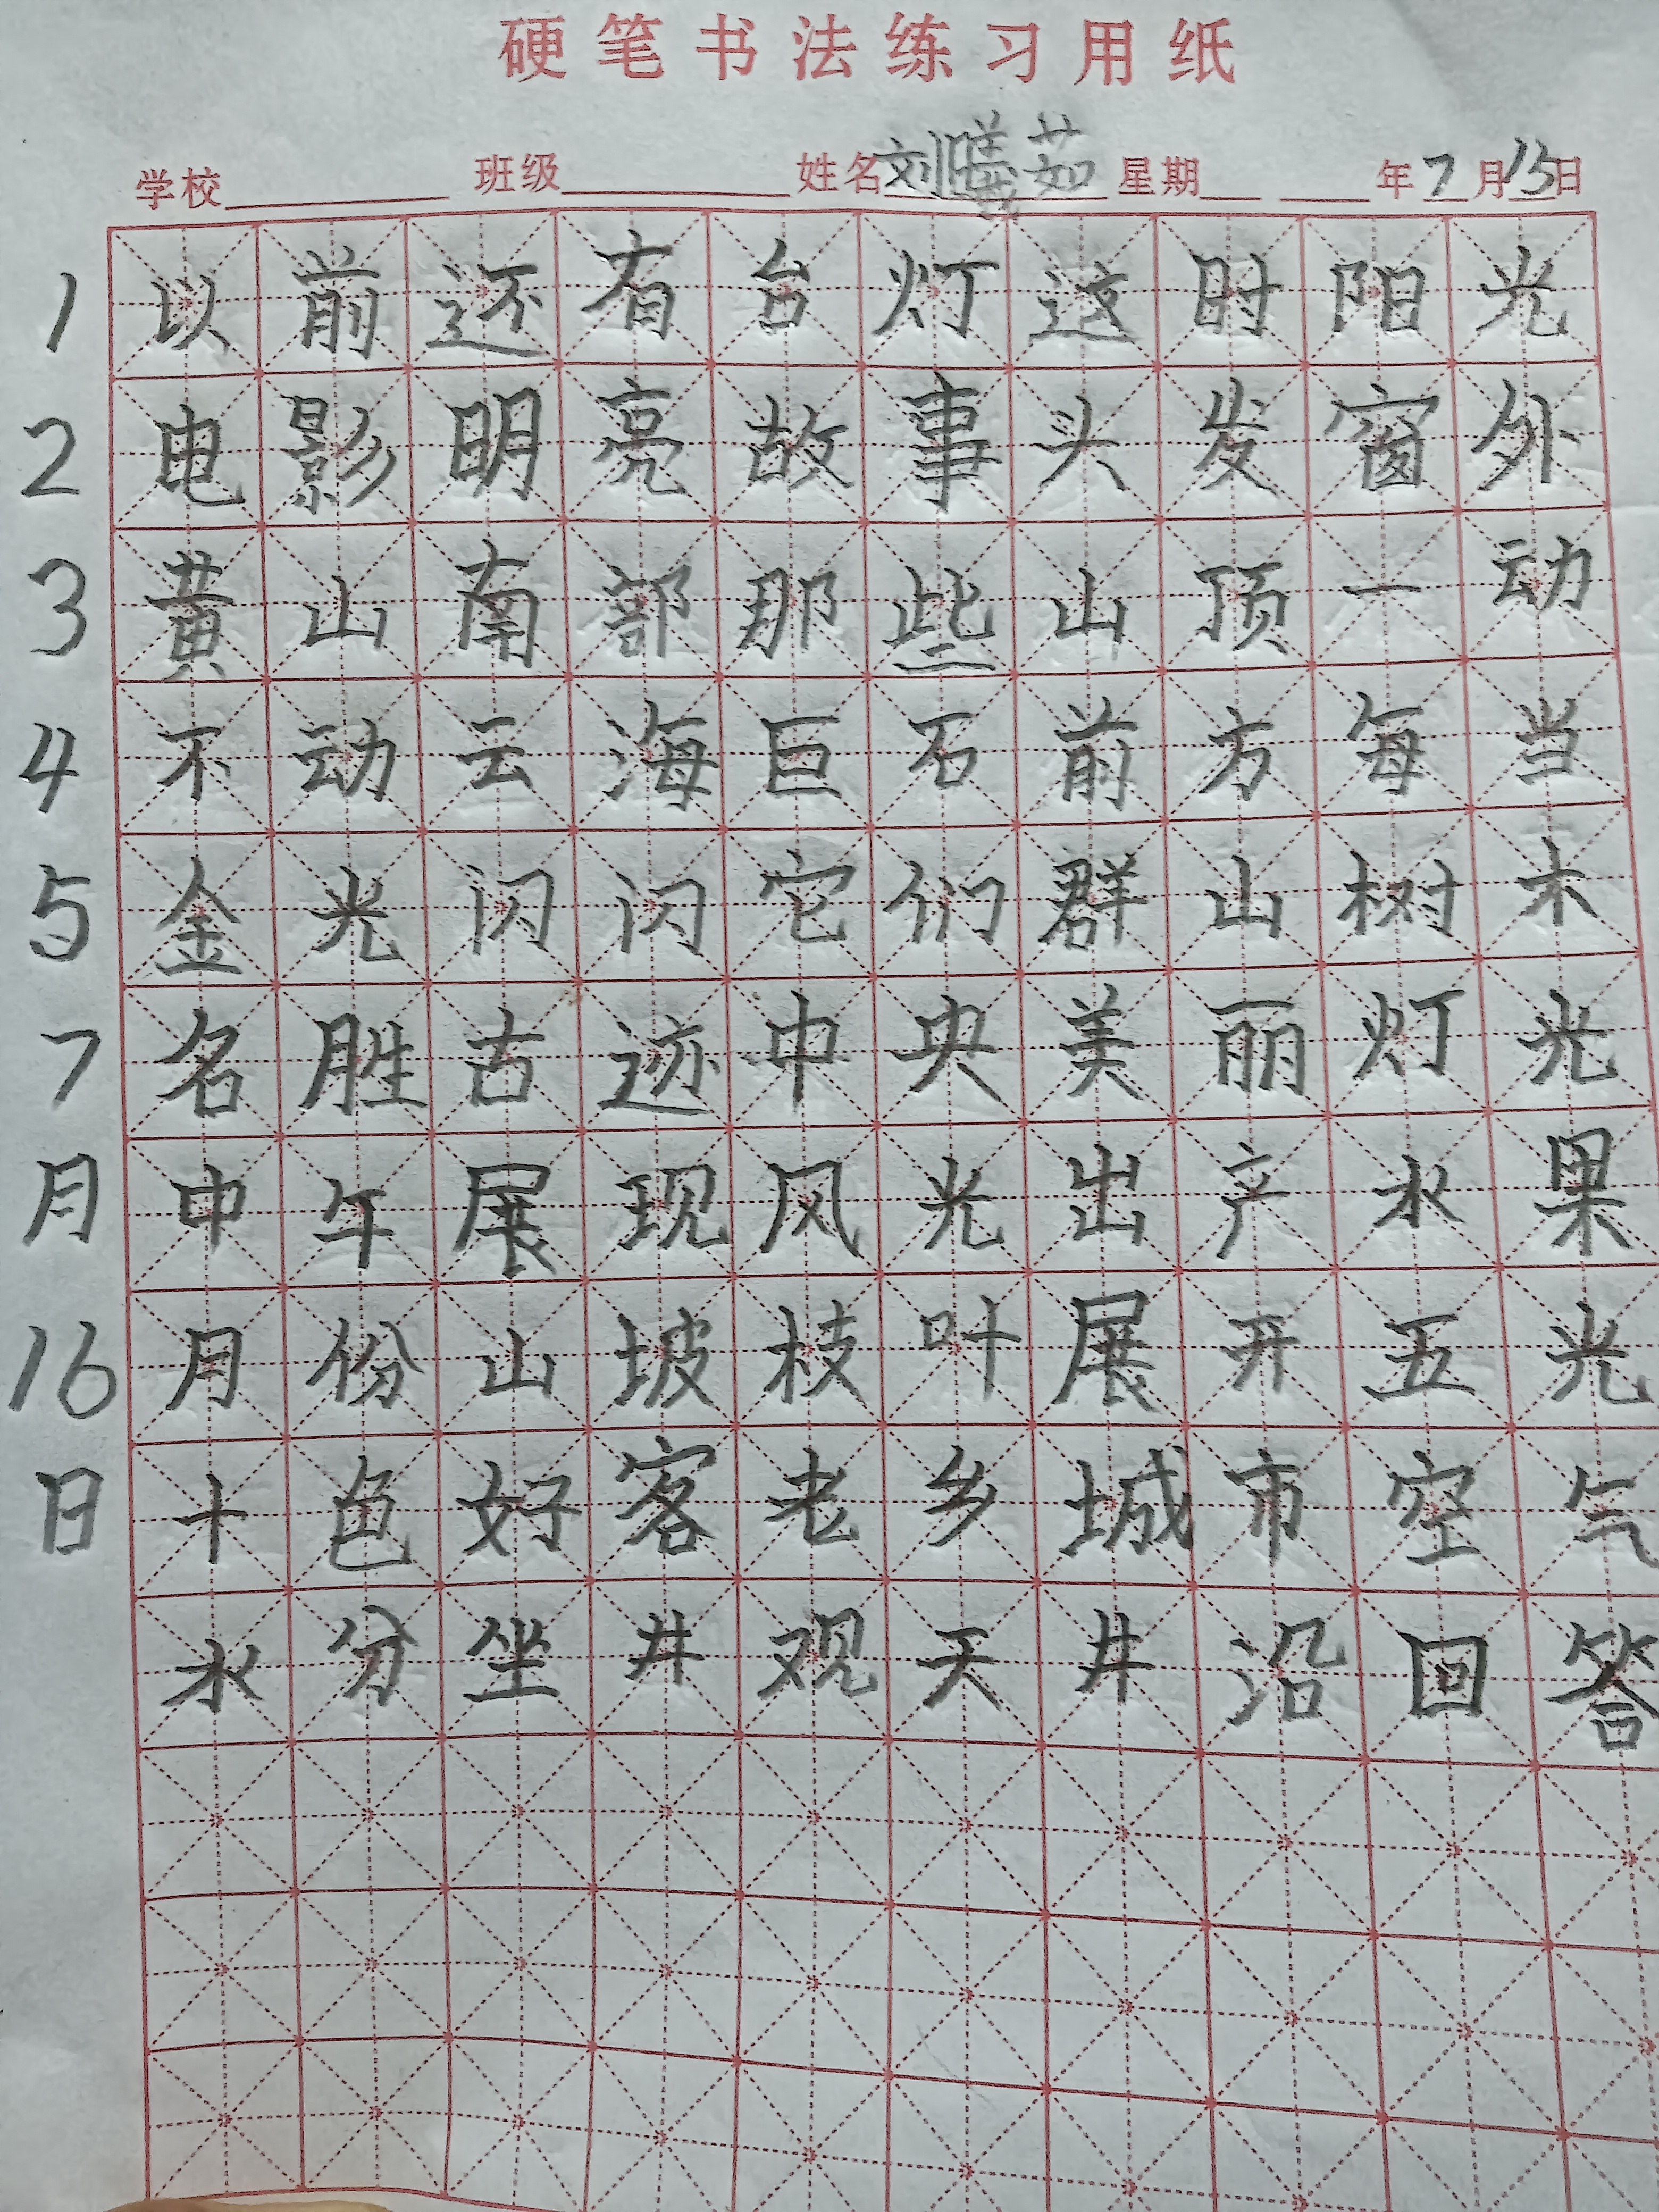 硬笔书法练习用纸
学校 班级 姓名刘曦茹 星期 年7月13日
1 以前还有台灯这时阳光
2 电影明亮故事头发窗外
3 黄山南部那些山顶一动
4 不动云海巨石前方每当
5 金光闪闪它们群山树木
7 名胜古迹中央美丽灯光
月 中午展现风光出产水果
16 月份山坡枝叶展开五光
日 十色好客老乡城市空气
水分坐井观天井沿回答